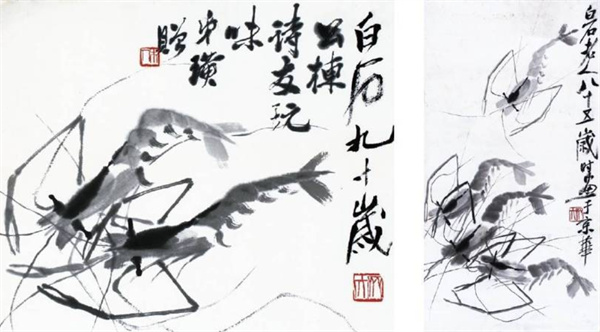 白石九十歲
公棟
詩友玩
味
弟璜
贈
白石老人八十五歲時畫于京華